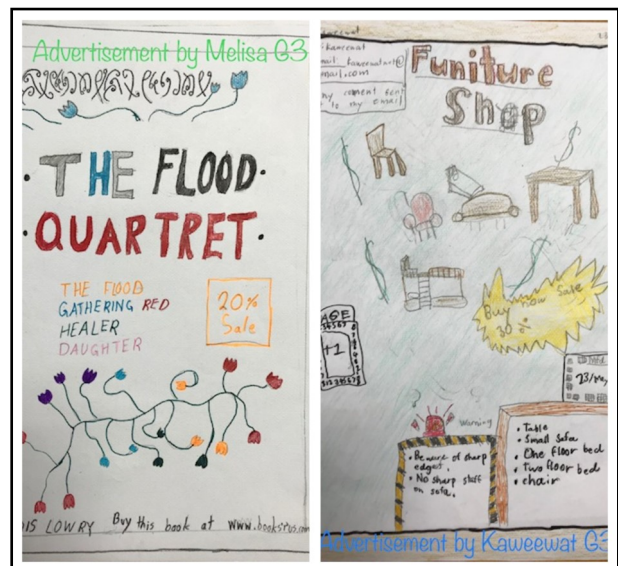 Advertisement by Melisa G3
THE FLOOD
QUARTRET
THE FLOOD
GATHERING RED
HEALER
DAUGHTER
20%
Sale
IS LOWRY Buy this book at www.booksrus.com
Kaweewat
mail.com
to my email
Funiture
Shop
Buy now Sale
30%
AGE
+1
23/
Warning
• Beware of sharp
edges.
• No sharp stuff
on sofa.
• Table
• Small Sofa
• One floor bed
• Two floor bed
• chair
Advertisement by Kaweewat G3